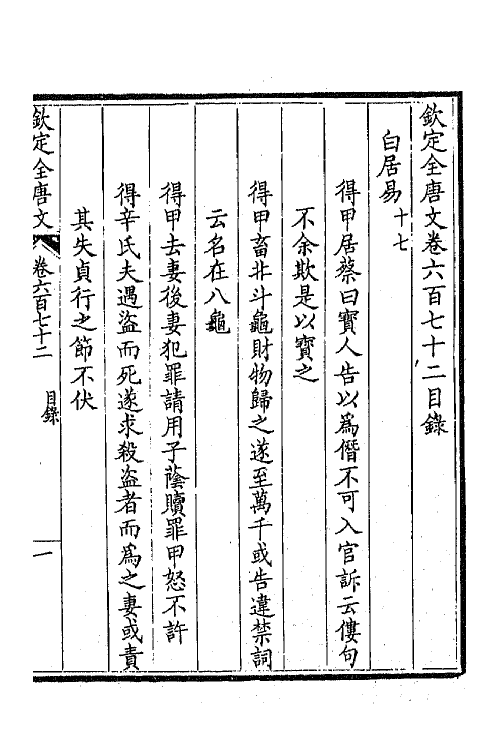 欽定全唐文卷六百七十二目錄
白居易十七
得甲居蔡曰寶人告以為僭不可入官訴云僂句
不余欺是以寶之
得甲畜北斗龜財物歸之遂至萬千或告違禁詞
云名在八龜
得甲去妻後妻犯罪請用子蔭贖罪甲怒不許
得辛氏夫遇盜而死遂求殺盜者而為之妻或責
其失貞行之節不伏
欽定全唐文 卷六百七十二 目錄 一